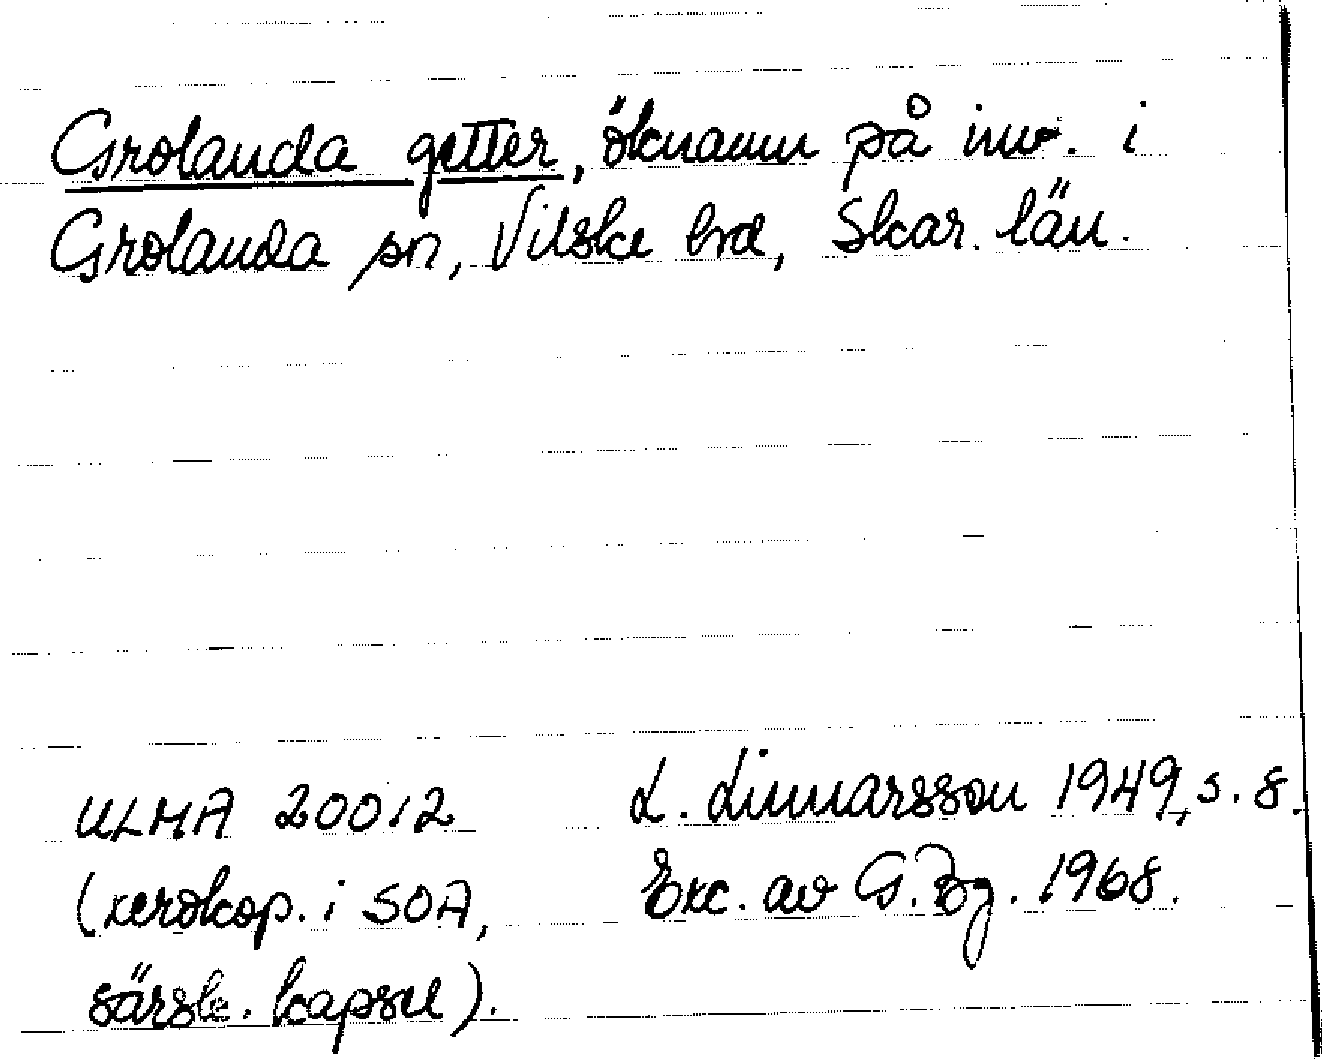 Grolanda getter, öknamn på inv. i
Grolanda sn, Vilske hd, Skar. län.
ULMA 20012 L. Linnarsson 1949, s. 8.
(xerokop. i SOA, Exc. av G. Bg. 1968.
särsk. kapsel).